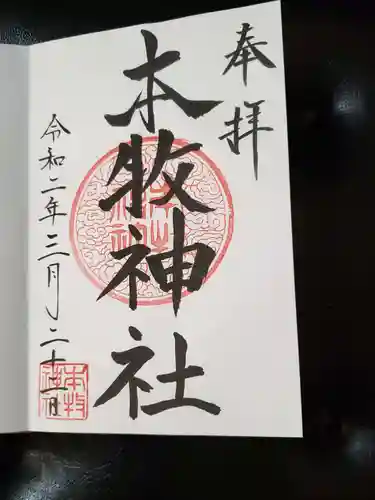 奉拝
本牧神社
令和二年三月二十二日
本牧神社